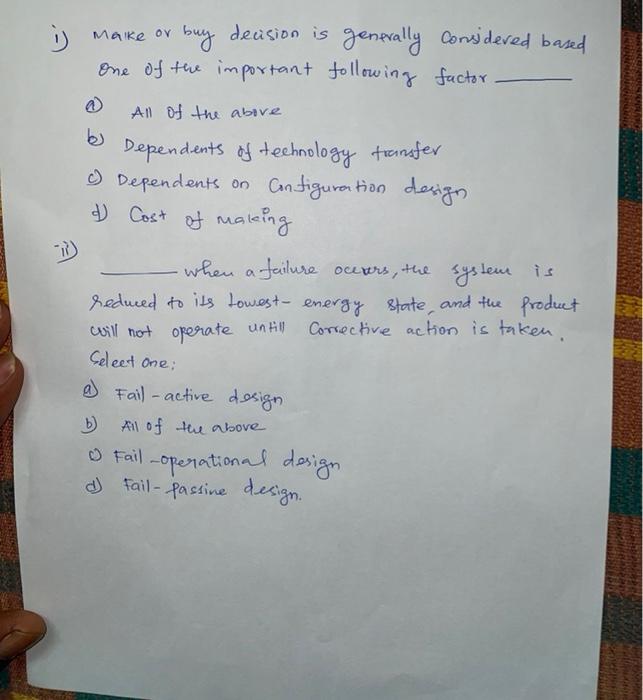 i) Make or buy decision is generally Considered based
One of the important following factor ______
a) All of the above
b) Dependents of technology transfer
c) Dependents on Configuration design
d) Cost of making
ii)
______ when a failure occurs, the system is
reduced to its Lowest- energy state, and the product
will not operate untill Corrective action is taken.
Select one:
a) Fail - active design
b) All of the above
c) Fail -operational design
d) Fail- passive design.